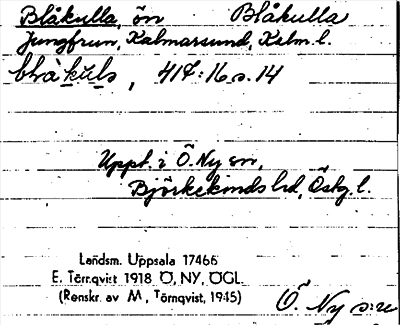 Blåkulla, ön Blåkulla
Jungfrun, Kalmarsund, Kalm. l.
blràkùls, 417:16 s. 14
Uppt. i Ö. Ny sn,
Björkekinds hd, Östg. l.
Landsm. Uppsala 17466
E. Törnqvist 1918 Ö. NY, ÖGL.
(Renskr. av M. Törnqvist, 1945)
Ö. Ny s:n